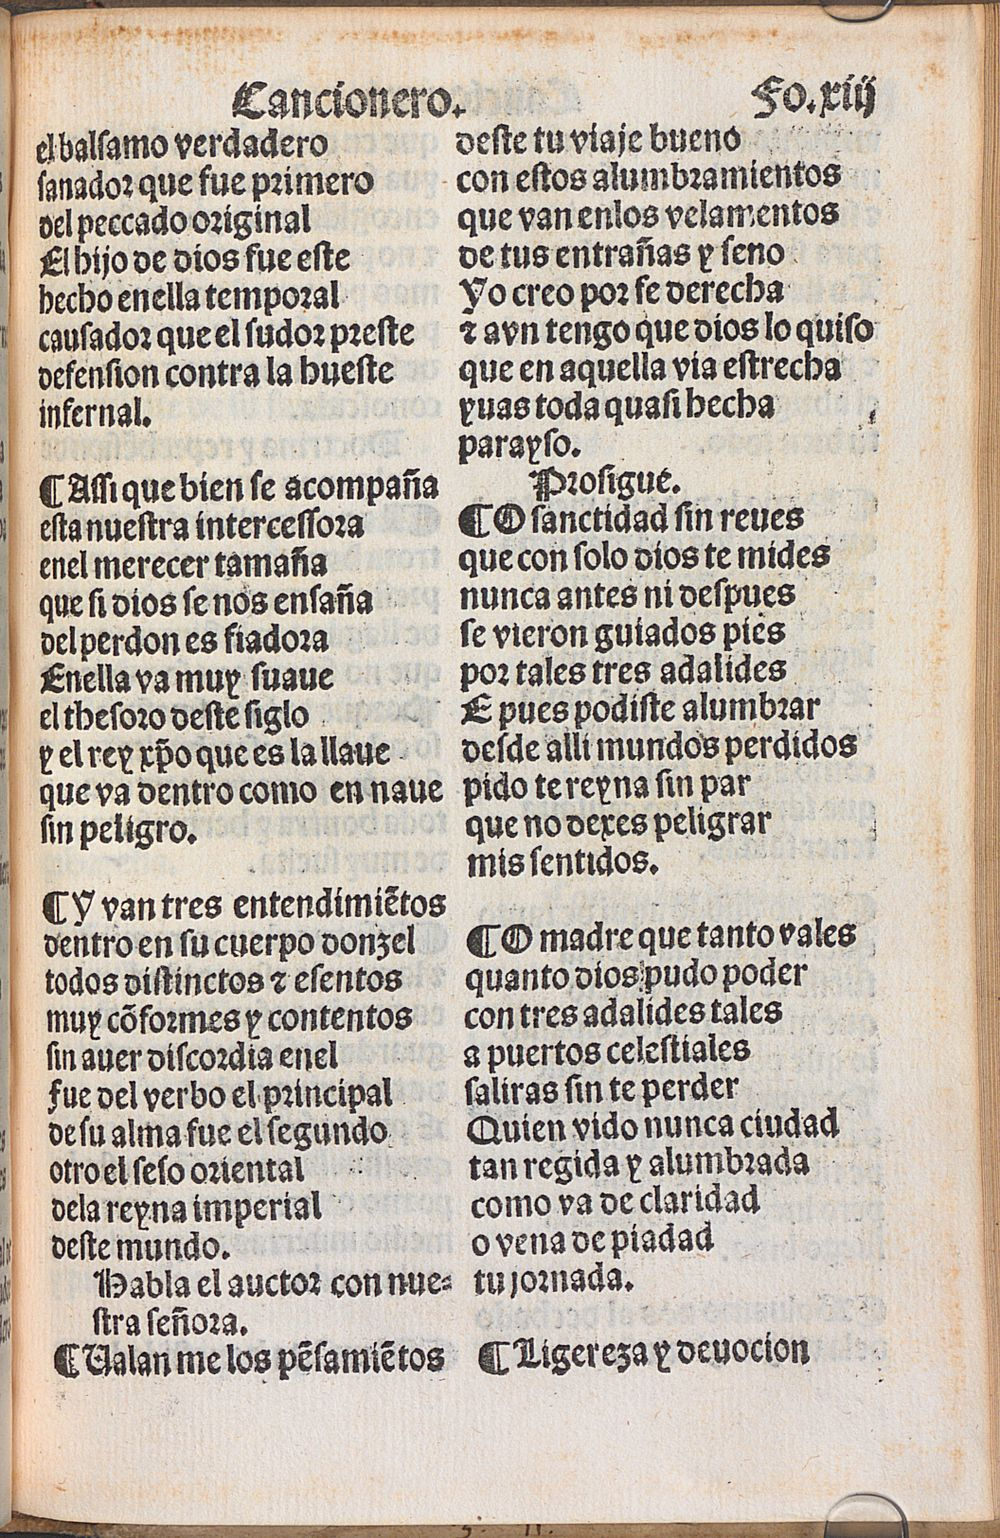 Cancionero. Fo.xiij
el balsamo verdadero
sanador que fue primero
del peccado original
El hijo de dios fue este
hecho enella temporal
causador que el sudor preste
defension contra la hueste
infernal.
¶ Assi que bien se acompaña
esta nuestra intercessora
enel merecer tamaña
que si dios se nos ensaña
del perdon es fiadora
Enella va muy suaue
el thesoro deste siglo
y el rey xp̄o que es la llaue
que va dentro como en naue
sin peligro.
¶ Y van tres entendimiẽtos
dentro en su cuerpo donzel
todos distinctos ⁊ esentos
muy cõformes y contentos
sin auer discordia enel
fue del verbo el principal
de su alma fue el segundo
otro el seso oriental
dela reyna imperial
deste mundo.
Habla el auctor con nue-
stra señora.
¶ Ualan me los pẽsamiẽtos
deste tu viaje bueno
con estos alumbramientos
que van enlos velamentos
de tus entrañas y seno
Yo creo por fe derecha
⁊ avn tengo que dios lo quiso
que en aquella via estrecha
yuas toda quasi hecha
parayso.
Prosigue.
¶ O sanctidad sin reues
que con solo dios te mides
nunca antes ni despues
se vieron guiados pies
por tales tres adalides
E pues podiste alumbrar
desde alli mundos perdidos
pido te reyna sin par
que no dexes peligrar
mis sentidos.
¶ O madre que tanto vales
quanto dios pudo poder
con tres adalides tales
a puertos celestiales
saliras sin te perder
Quien vido nunca ciudad
tan regida y alumbrada
como va de claridad
o vena de piadad
tu jornada.
¶ Ligereza y deuocion